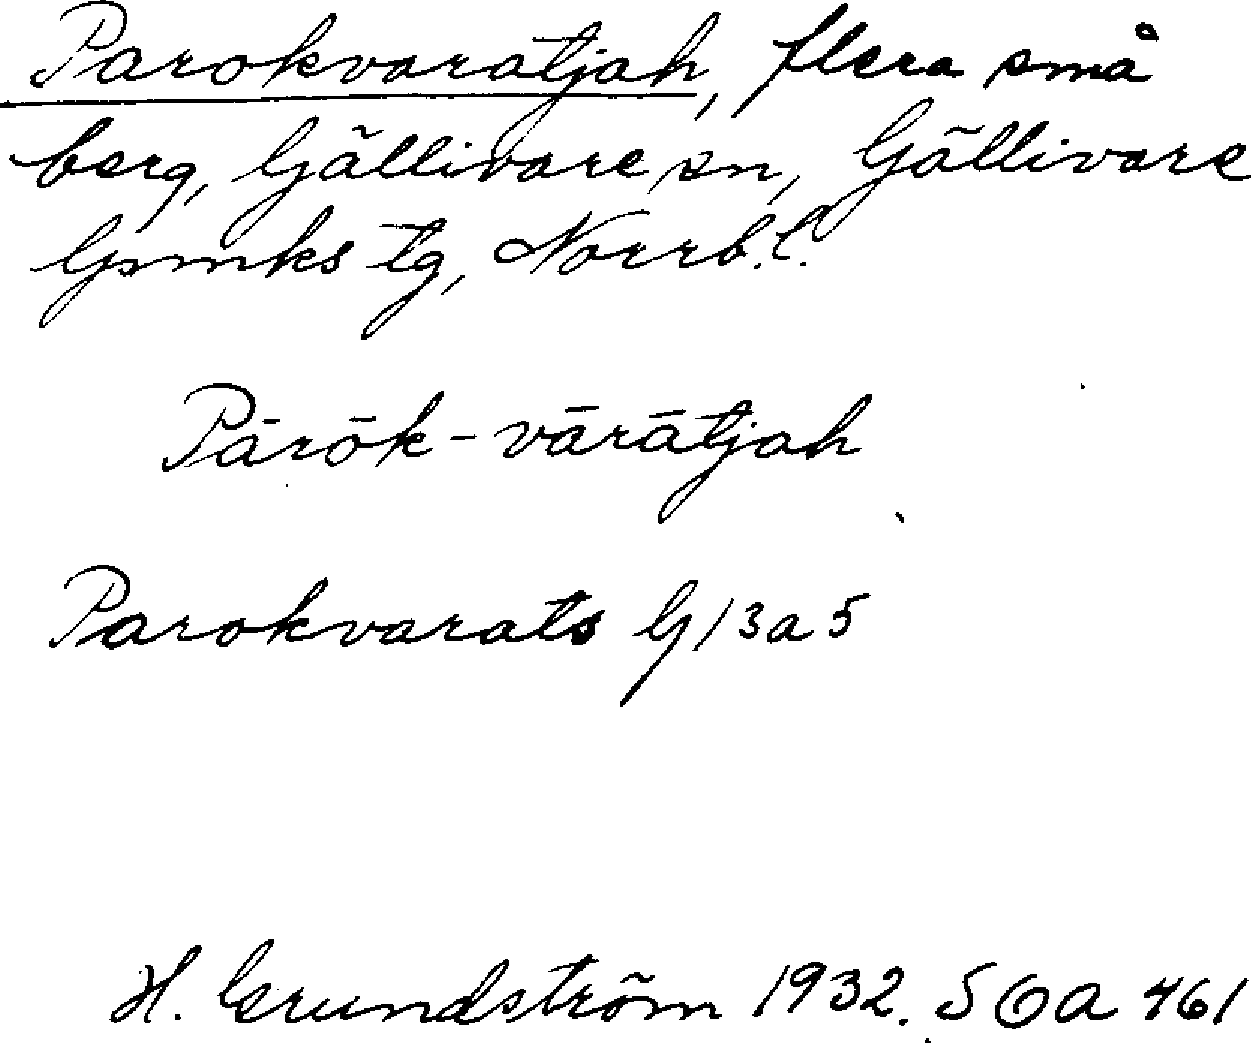 Parokvaratjah, flera små
berg, Gällivare sn, Gällivare
Gpmks tg, Norrb. l.
Pārōk-vārātjah
Parokvarats G 13 a 5
H. Grundström 1932. S a 461